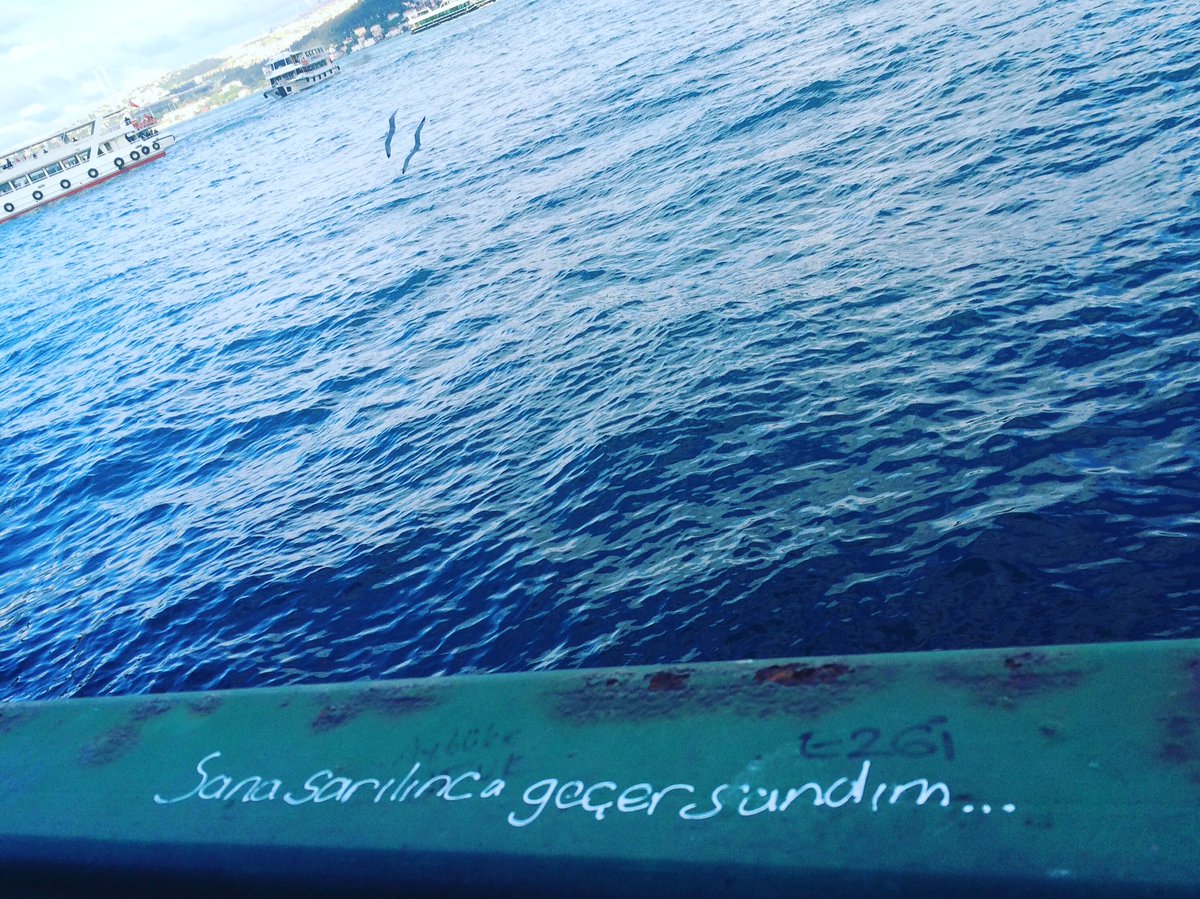 EZGİ
Sana sarılınca geçer sandım...